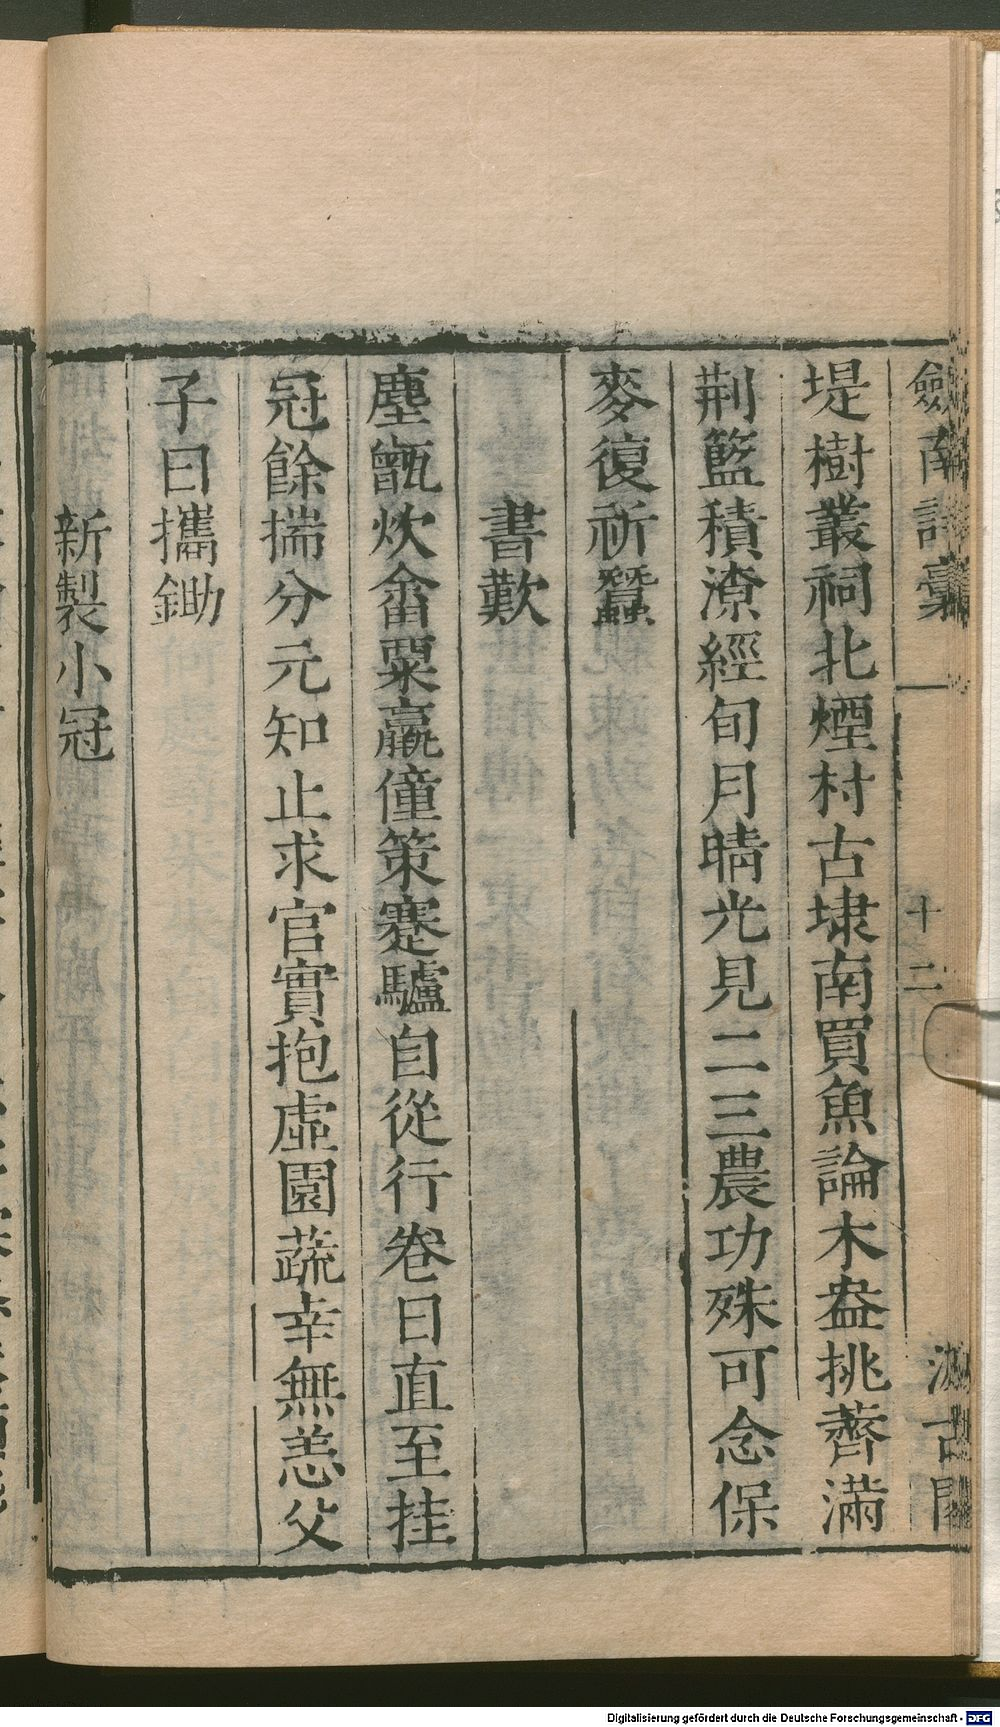 劍南詩稾 十二 汲古閣
堤樹叢祠北煙村古埭南買魚論木盎挑薺滿
荆籃積潦經旬月晴光見二三農功殊可念保
麥復祈蠶
書歎
塵甑炊畬粟羸僮策蹇驢自從行卷日直至挂
冠餘揣分元知止求官實抱虛園蔬幸無恙父
子日攜鋤
新製小冠
Digitalisierung gefördert durch die Deutsche Forschungsgemeinschaft - DFG